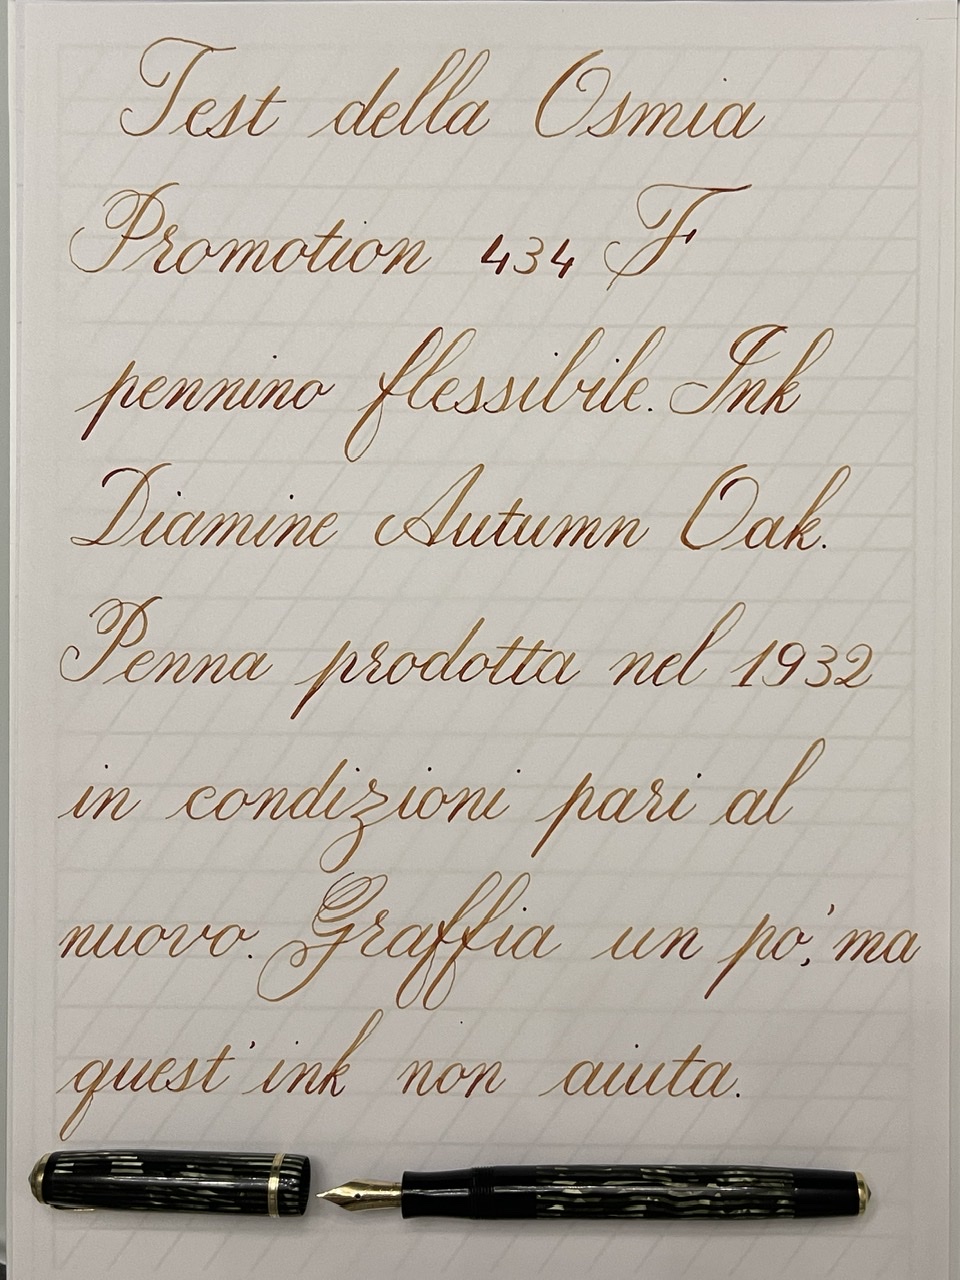 Test della Osmia
Promotion 434 F
pennino flessibile. Ink
Diamine Autumn Oak.
Penna prodotta nel 1932
in condizioni pari al
nuovo. Graffia un po', ma
quest'ink non aiuta.